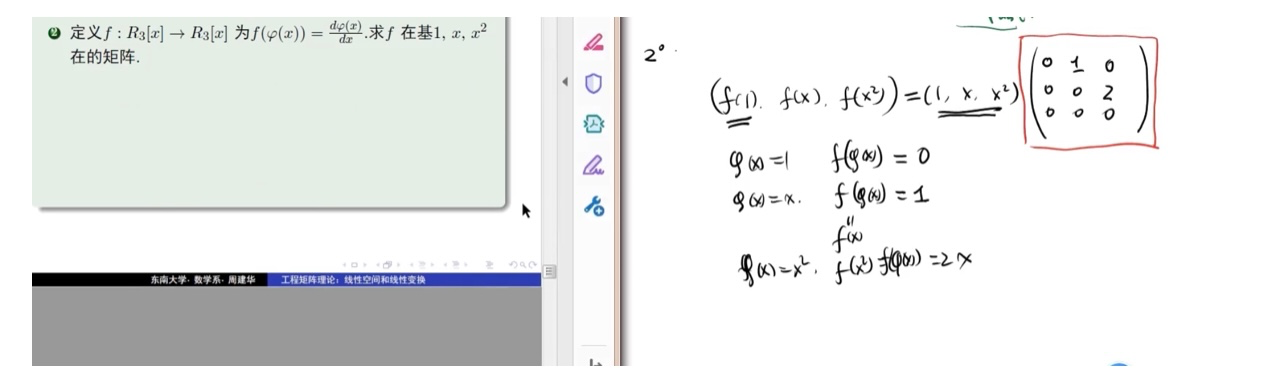 ❷ 定义f : R₃[x] → R₃[x] 为f(φ(x)) = dφ(x)/dx.求f 在基1, x, x²
在的矩阵.
东南大学· 数学系· 周建华 工程矩阵理论：线性空间和线性变换
2°
(f(1). f(x). f(x²)) = (1, x, x²) (0 1 0
0 0 2
0 0 0)
φ(x) = 1 f(φ(x)) = 0
φ(x) = x. f(φ(x)) = 1
f(x)
φ(x) = x². f(x²) f(φ(x)) = 2x